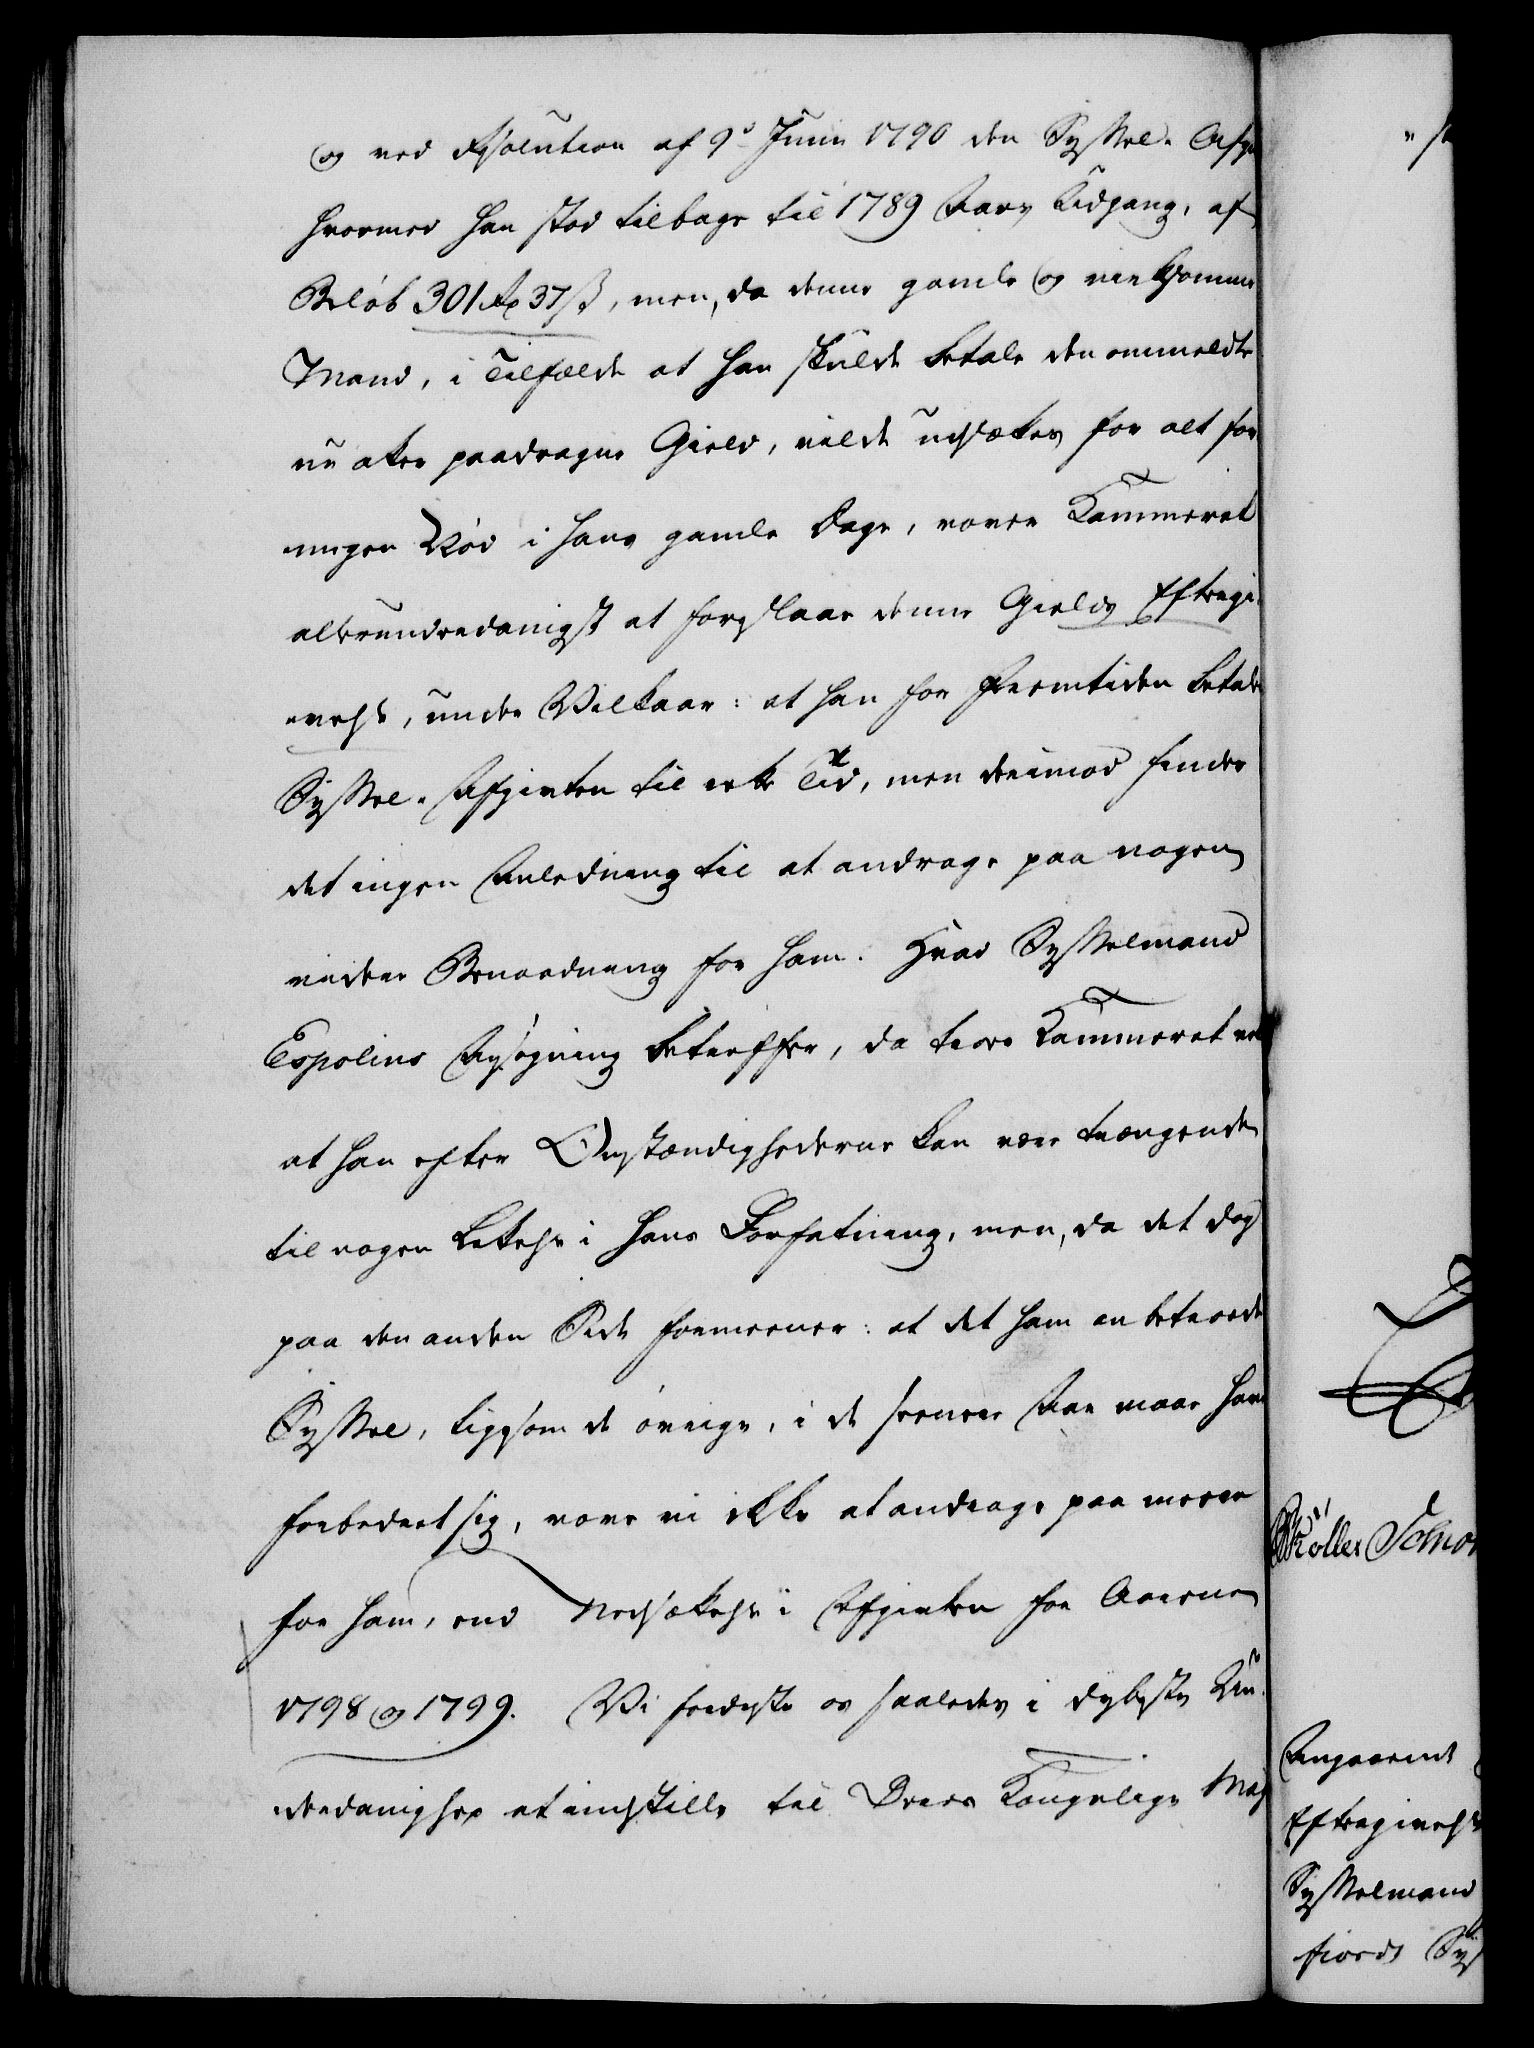 og ved Resolution af 9d Junii 1790 den Syssel-Afgi
hvormed han stod tilbage til 1789 Aars Udgang, af
Beløb 301 rd 37 ß, men, da denne gamle og virksomme
Mand, i Tilfælde at han skulde betale den ommeldte
nu atter paadragne Gield, vilde udsættes for alt for
megen Nød i hans gamle Dage, vover Kammeret
allerunderdanigst at foreslaae denne Gields Eftergi-
velse, under Vilkaar: at han for Fremtiden betaler
Syssel-Afgiften til rette Tid, men derimod finder
det ingen Anledning til at andrage paa nogen
videre Benaadning for ham. Hvad Sysselmand
Espolins Ansøgning betreffer, da troer Kammeret vel
at han efter Omstændighederne kan være trængende
til nogen Lettelse i hans Forfatning, men, da det dog
paa den anden Side formeener: at det ham anbetroede
Syssel, ligesom de øvrige, i de seenere Aar maae have
forbedret sig, vove vi ikke at andrage paa meere
for ham, end Nedsættelse i Afgiften for Aarene
1798 og 1799. Vi fordriste os saaledes i dybeste Un-
derdanighed at indstille til Deres Kongelige Maj
Møller Schow
Angaaende
Eftergivelse
Sysselmand
fiords Sys